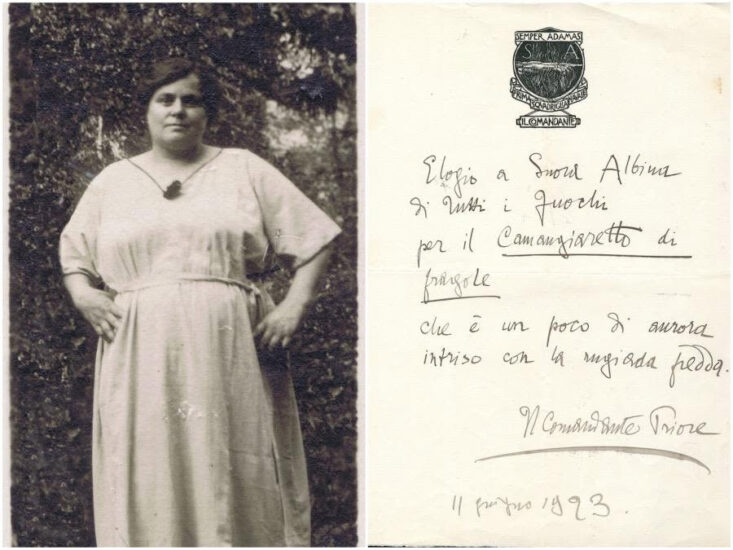 SEMPER ADAMAS
S A
PRIMA SQUADRIGLIA NAVALE
IL COMANDANTE
Elogio a Suora Albina
di tutti i Fuochi
per il Camangiaretto di
fragole
che è un poco di aurora
intriso con la rugiada fredda.
Il Comandante Priore
11 giugno 1923.